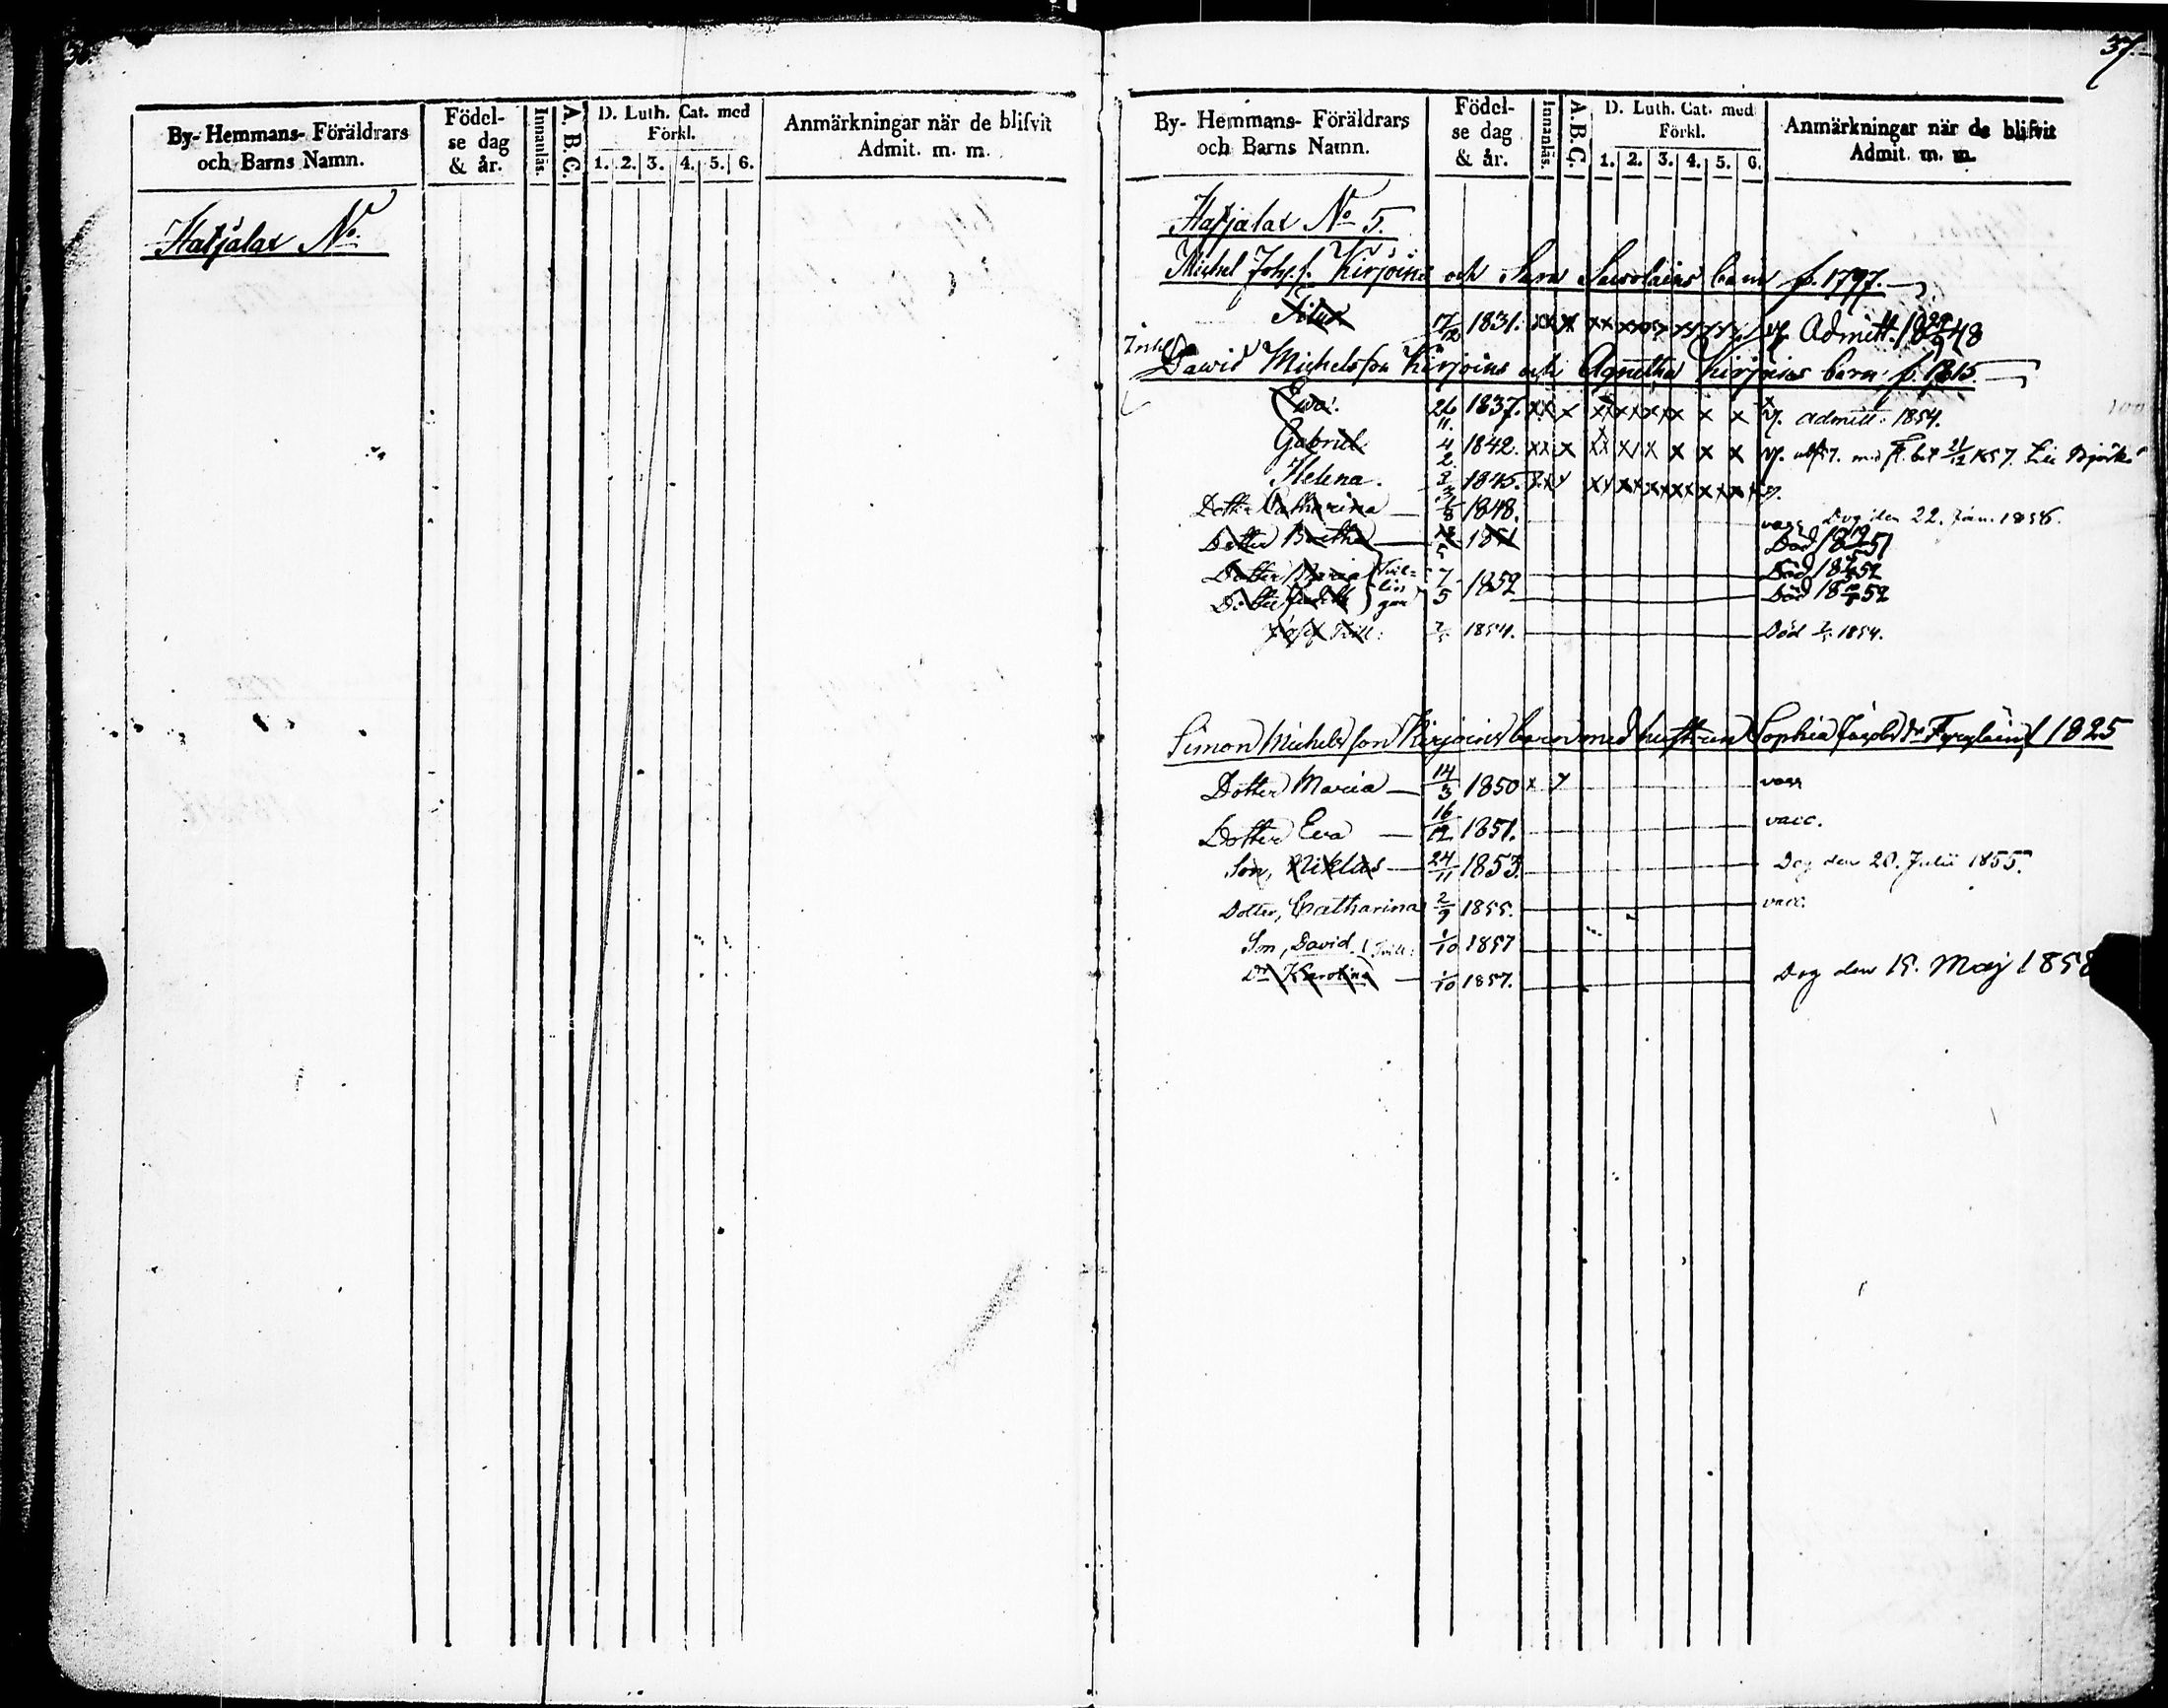 36.
By- Hemmans- Föräldrars och Barns Namn.
Födel- se dag & år.
Innanläs.
A. B. C.
D. Luth. Cat. med Förkl.
1. 2. 3. 4. 5. 6.
Anmärkningar när de blifvit Admit. m. m.
Hatjalax No.
37.
By- Hemmans- Föräldrars och Barns Namn.
Födel- se dag & år.
Innanläs.
A. B. C.
D. Luth. Cat. med Förkl.
1. 2. 3. 4. 5. 6.
Anmärkningar när de blifvit Admit. m. m.
Hatjalax No 5.
Michel Joh.s. Kirjoins och Sara Savolains barn f. 1797.
17/12 1831. Admitt. 18 48
Dawid Michelsson Kirjoins och Agnetha Kirjoins barn f. 1815.
Ewa. 26/11 1837. admitt: 1854.
Gabriel 4/2 1842. 21/12 1857. Björkö
Helena. 1845.
Dotter Catharina 1/8 1848. vacc. Dog den 22. Jan. 1856.
Dotter Bretha 1851 Död 18 51
Dotter Maria Tvil- 7/5 1852 Död 18 52
Dotter lin gar Död 18 52
Josef Till: 1854. Död 1854.
Simon Michelsson Kirjoins barn med hustrun Sophia Jacobs dr f 1825
Dotter Maria 14/3 1850 x vacc
Dotter Eva 16/12 1851. vacc.
Son, Niklas 24/11 1853. Dog den 20. Julii 1855.
Dotter, Catharina 2/9 1855. vacc.
Son, David Tvill: 1/10 1857
Dr Karolina 1/10 1857. Dog den 15. Maj 1858